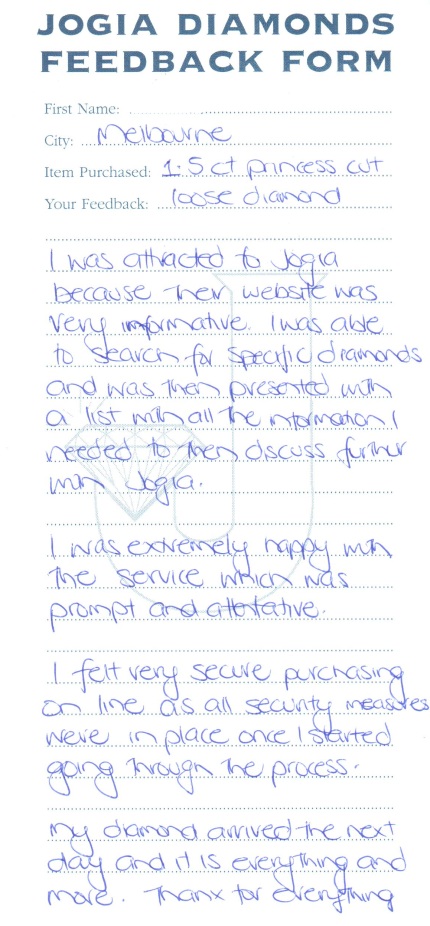 JOGIA DIAMONDS
FEEDBACK FORM
First Name:
City: Melbourne
Item Purchased: 1.5ct princess cut
Your Feedback: loose diamond
I was attracted to Jogia
because their website was
very informative. I was able
to search for specific diamonds
and was then presented with
a list with all the information I
needed to then discuss further
with Jogia.
I was extremely happy with
the service which was
prompt and attentative.
I felt very secure purchasing
on line as all security measures
were in place once I started
going through the process.
My diamond arrived the next
day and it is everything and
more. Thanx for everything